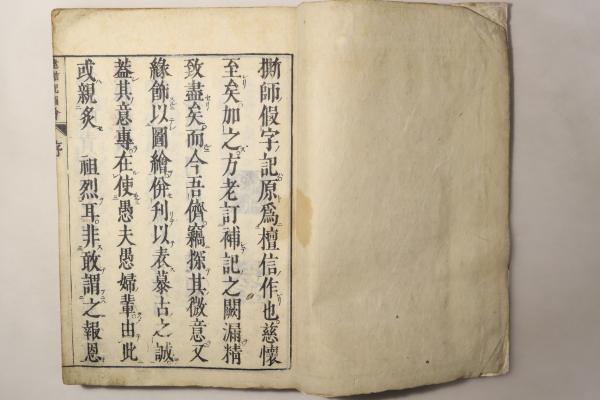 撕師假字記原爲檀信作也慈懷
至矣加之方老訂補記之闕漏精
致盡矣而今吾儕竊探其微意又
緣飾以圖繪倂刋以表慕古之誠
葢其意專在使愚夫愚婦輩由此
或親炙祖烈耳非敢謂之報恩
序